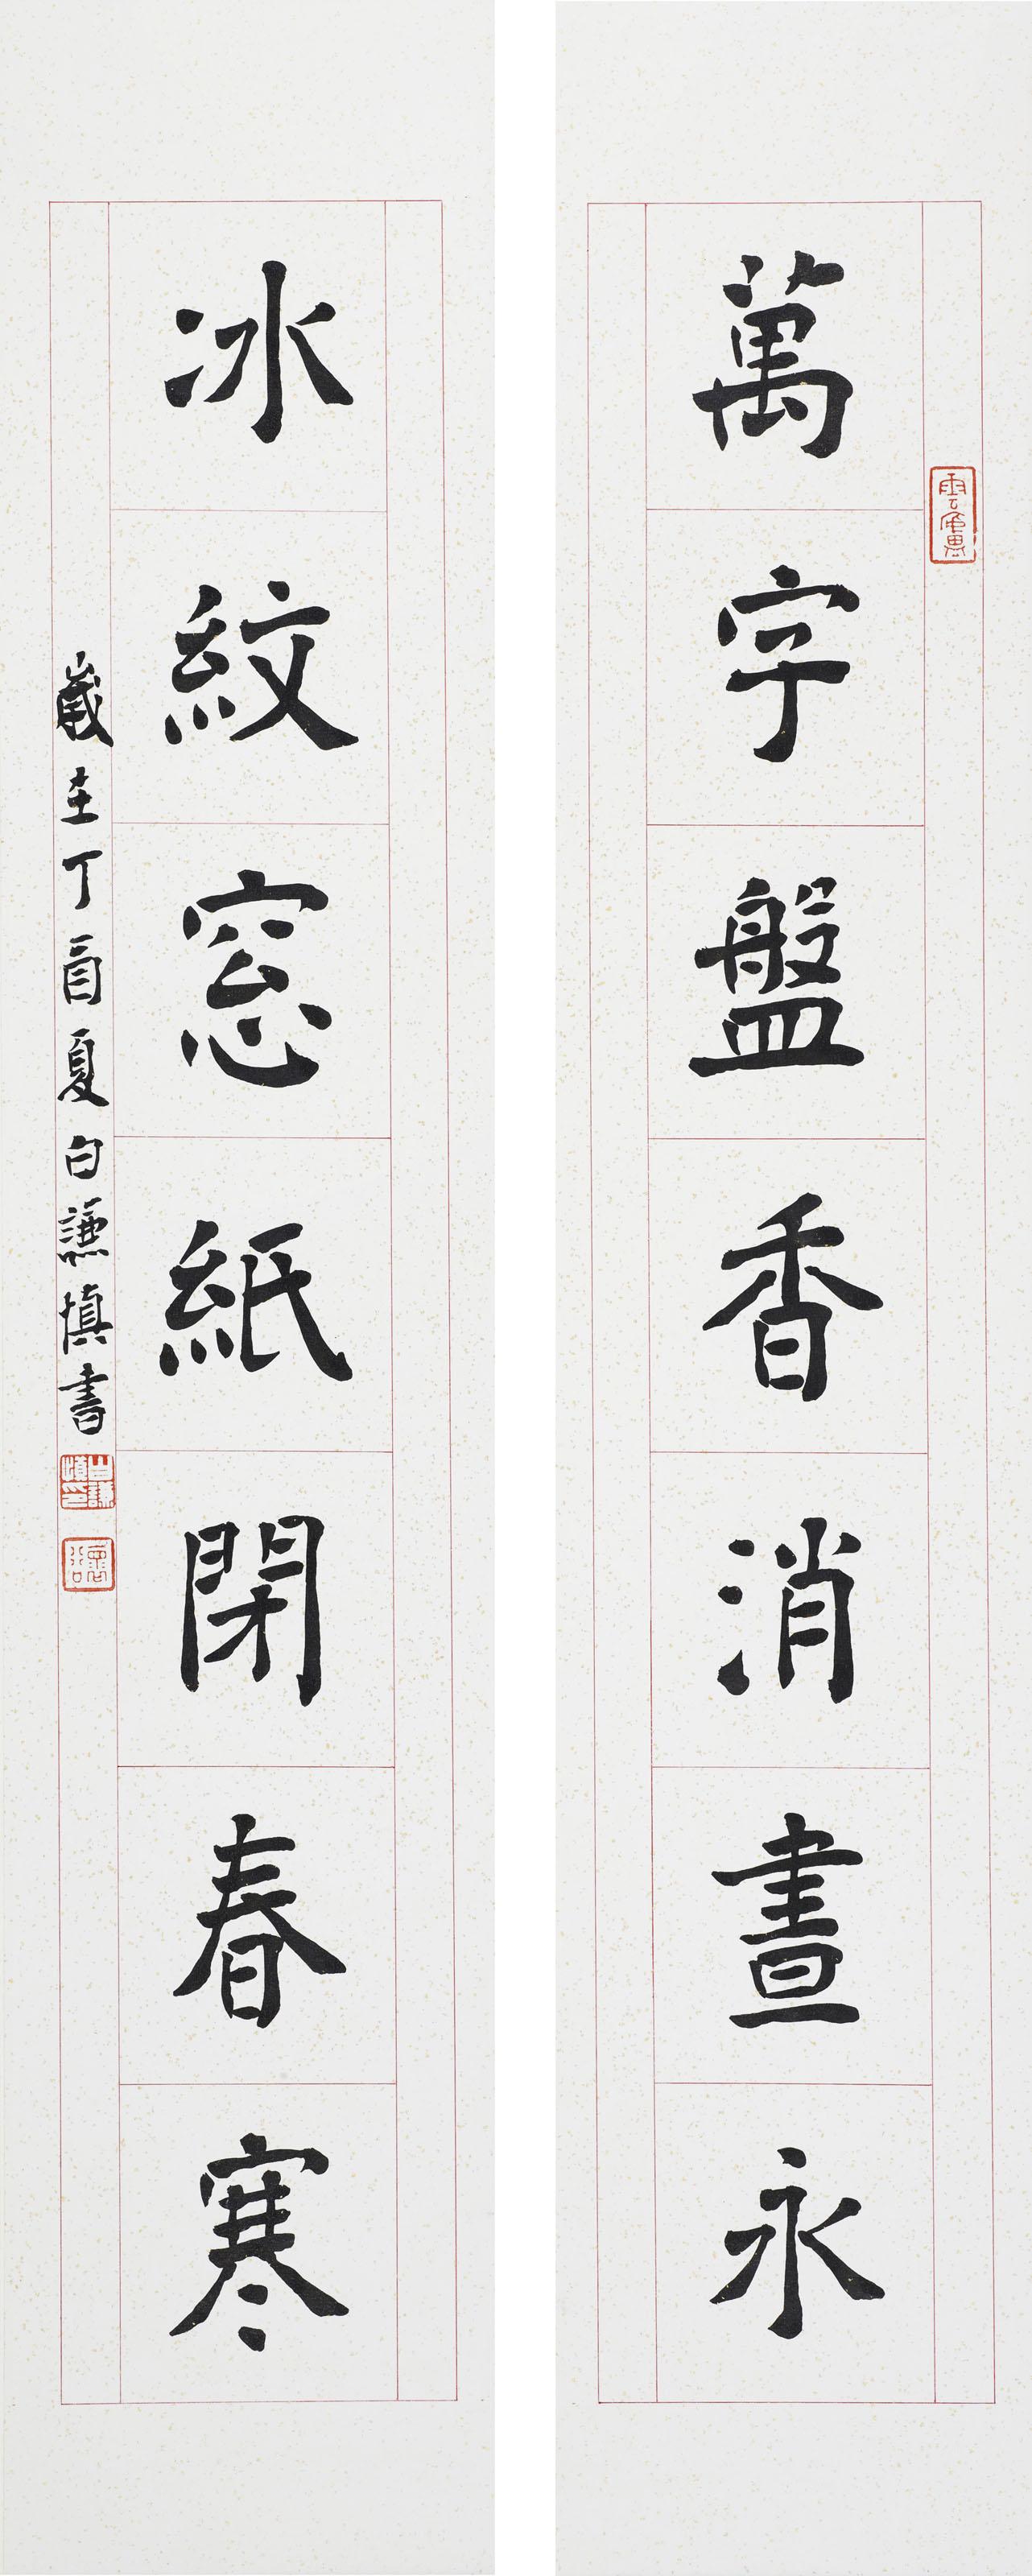 萬字盤香消晝永
冰紋窓紙閉春寒
歲在丁酉夏白謙慎書
白謙慎印